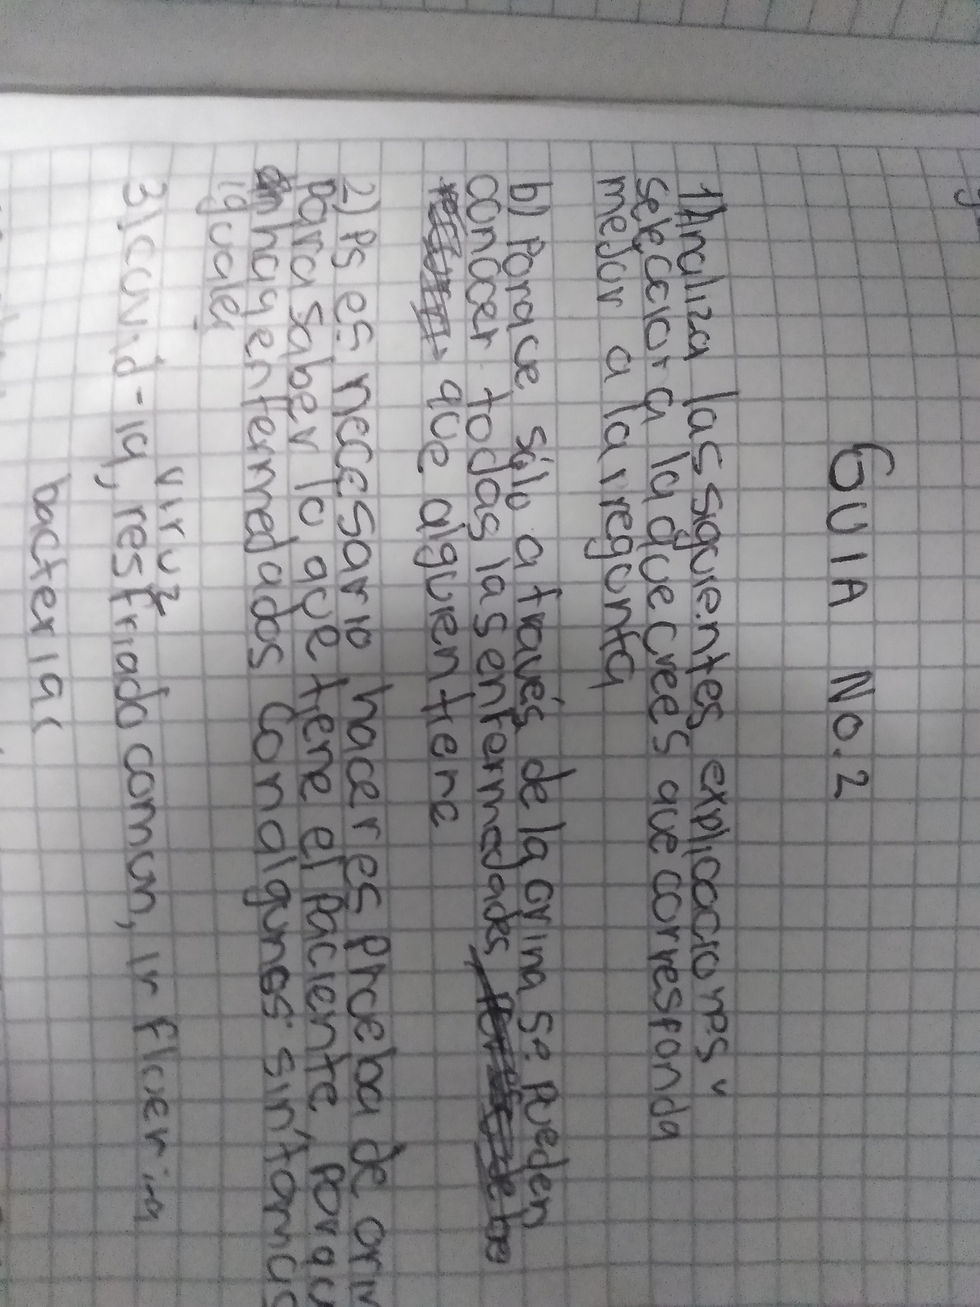 GUIA No.2
1) Analiza las siguientes explicaciones y
selecciona la que crees que corresponda
mejor a la pregunta
b) Porque sólo a través de la orina se pueden
conocer todas las enfermedades
que alguien tiene
2) Ps es necesario hacer es prueba de orin
para saber lo que tiene el paciente porqu
hay enfermedades con algunos sintomas
iguales
virus
3) covid-19, resfriado comun, influenza
bacterias